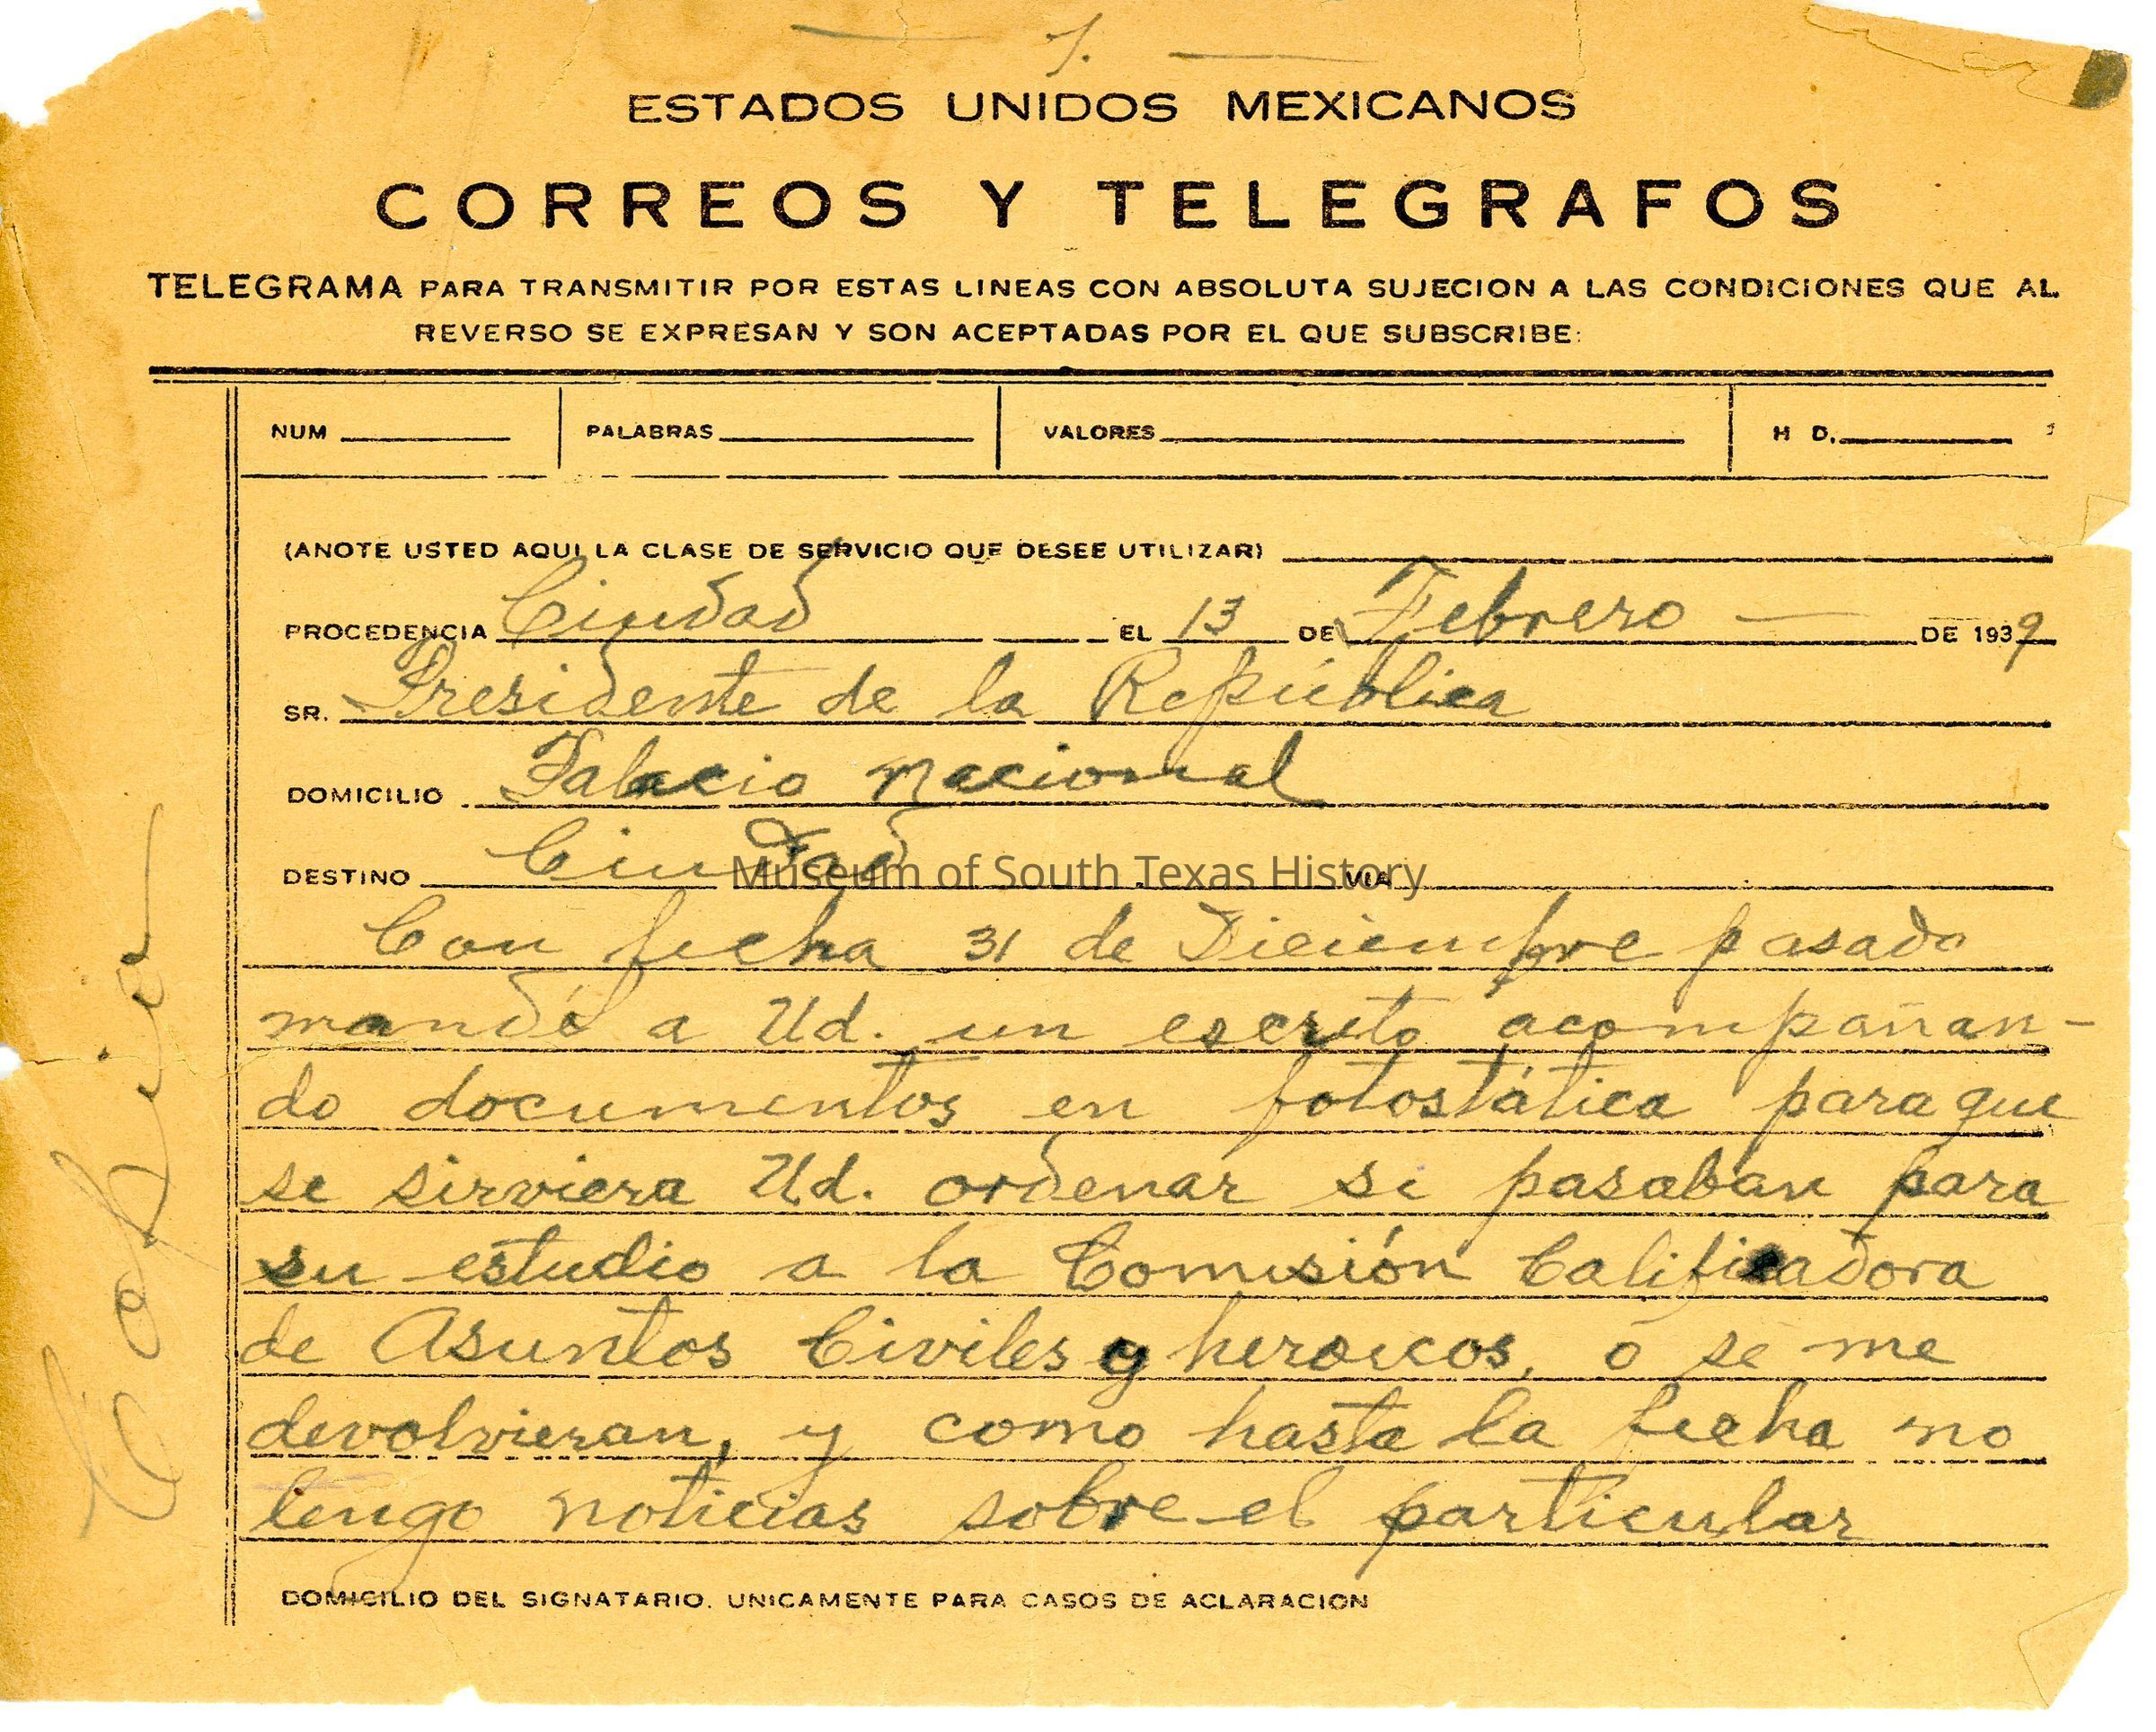 1.
ESTADOS UNIDOS MEXICANOS
CORREOS Y TELEGRAFOS
TELEGRAMA PARA TRANSMITIR POR ESTAS LINEAS CON ABSOLUTA SUJECION A LAS CONDICIONES QUE AL
REVERSO SE EXPRESAN Y SON ACEPTADAS POR EL QUE SUBSCRIBE:
NUM PALABRAS VALORES H D.
(ANOTE USTED AQUI LA CLASE DE SERVICIO QUE DESEE UTILIZAR)
PROCEDENCIA Ciudad EL 13 DE Febrero — DE 1939
SR. Presidente de la República
DOMICILIO Palacio Nacional
DESTINO Ciudad VIA
Museum of South Texas History
Con fecha 31 de Diciembre pasado
mandé a Ud. un escrito acompañan-
do documentos en fotostática para que
se sirviera Ud. ordenar si pasaban para
su estudio a la Comisión Calificadora
de Asuntos Civiles y heroicos, ó se me
devolvieran, y como hasta la fecha no
tengo noticias sobre el particular
DOMICILIO DEL SIGNATARIO. UNICAMENTE PARA CASOS DE ACLARACION
Copia